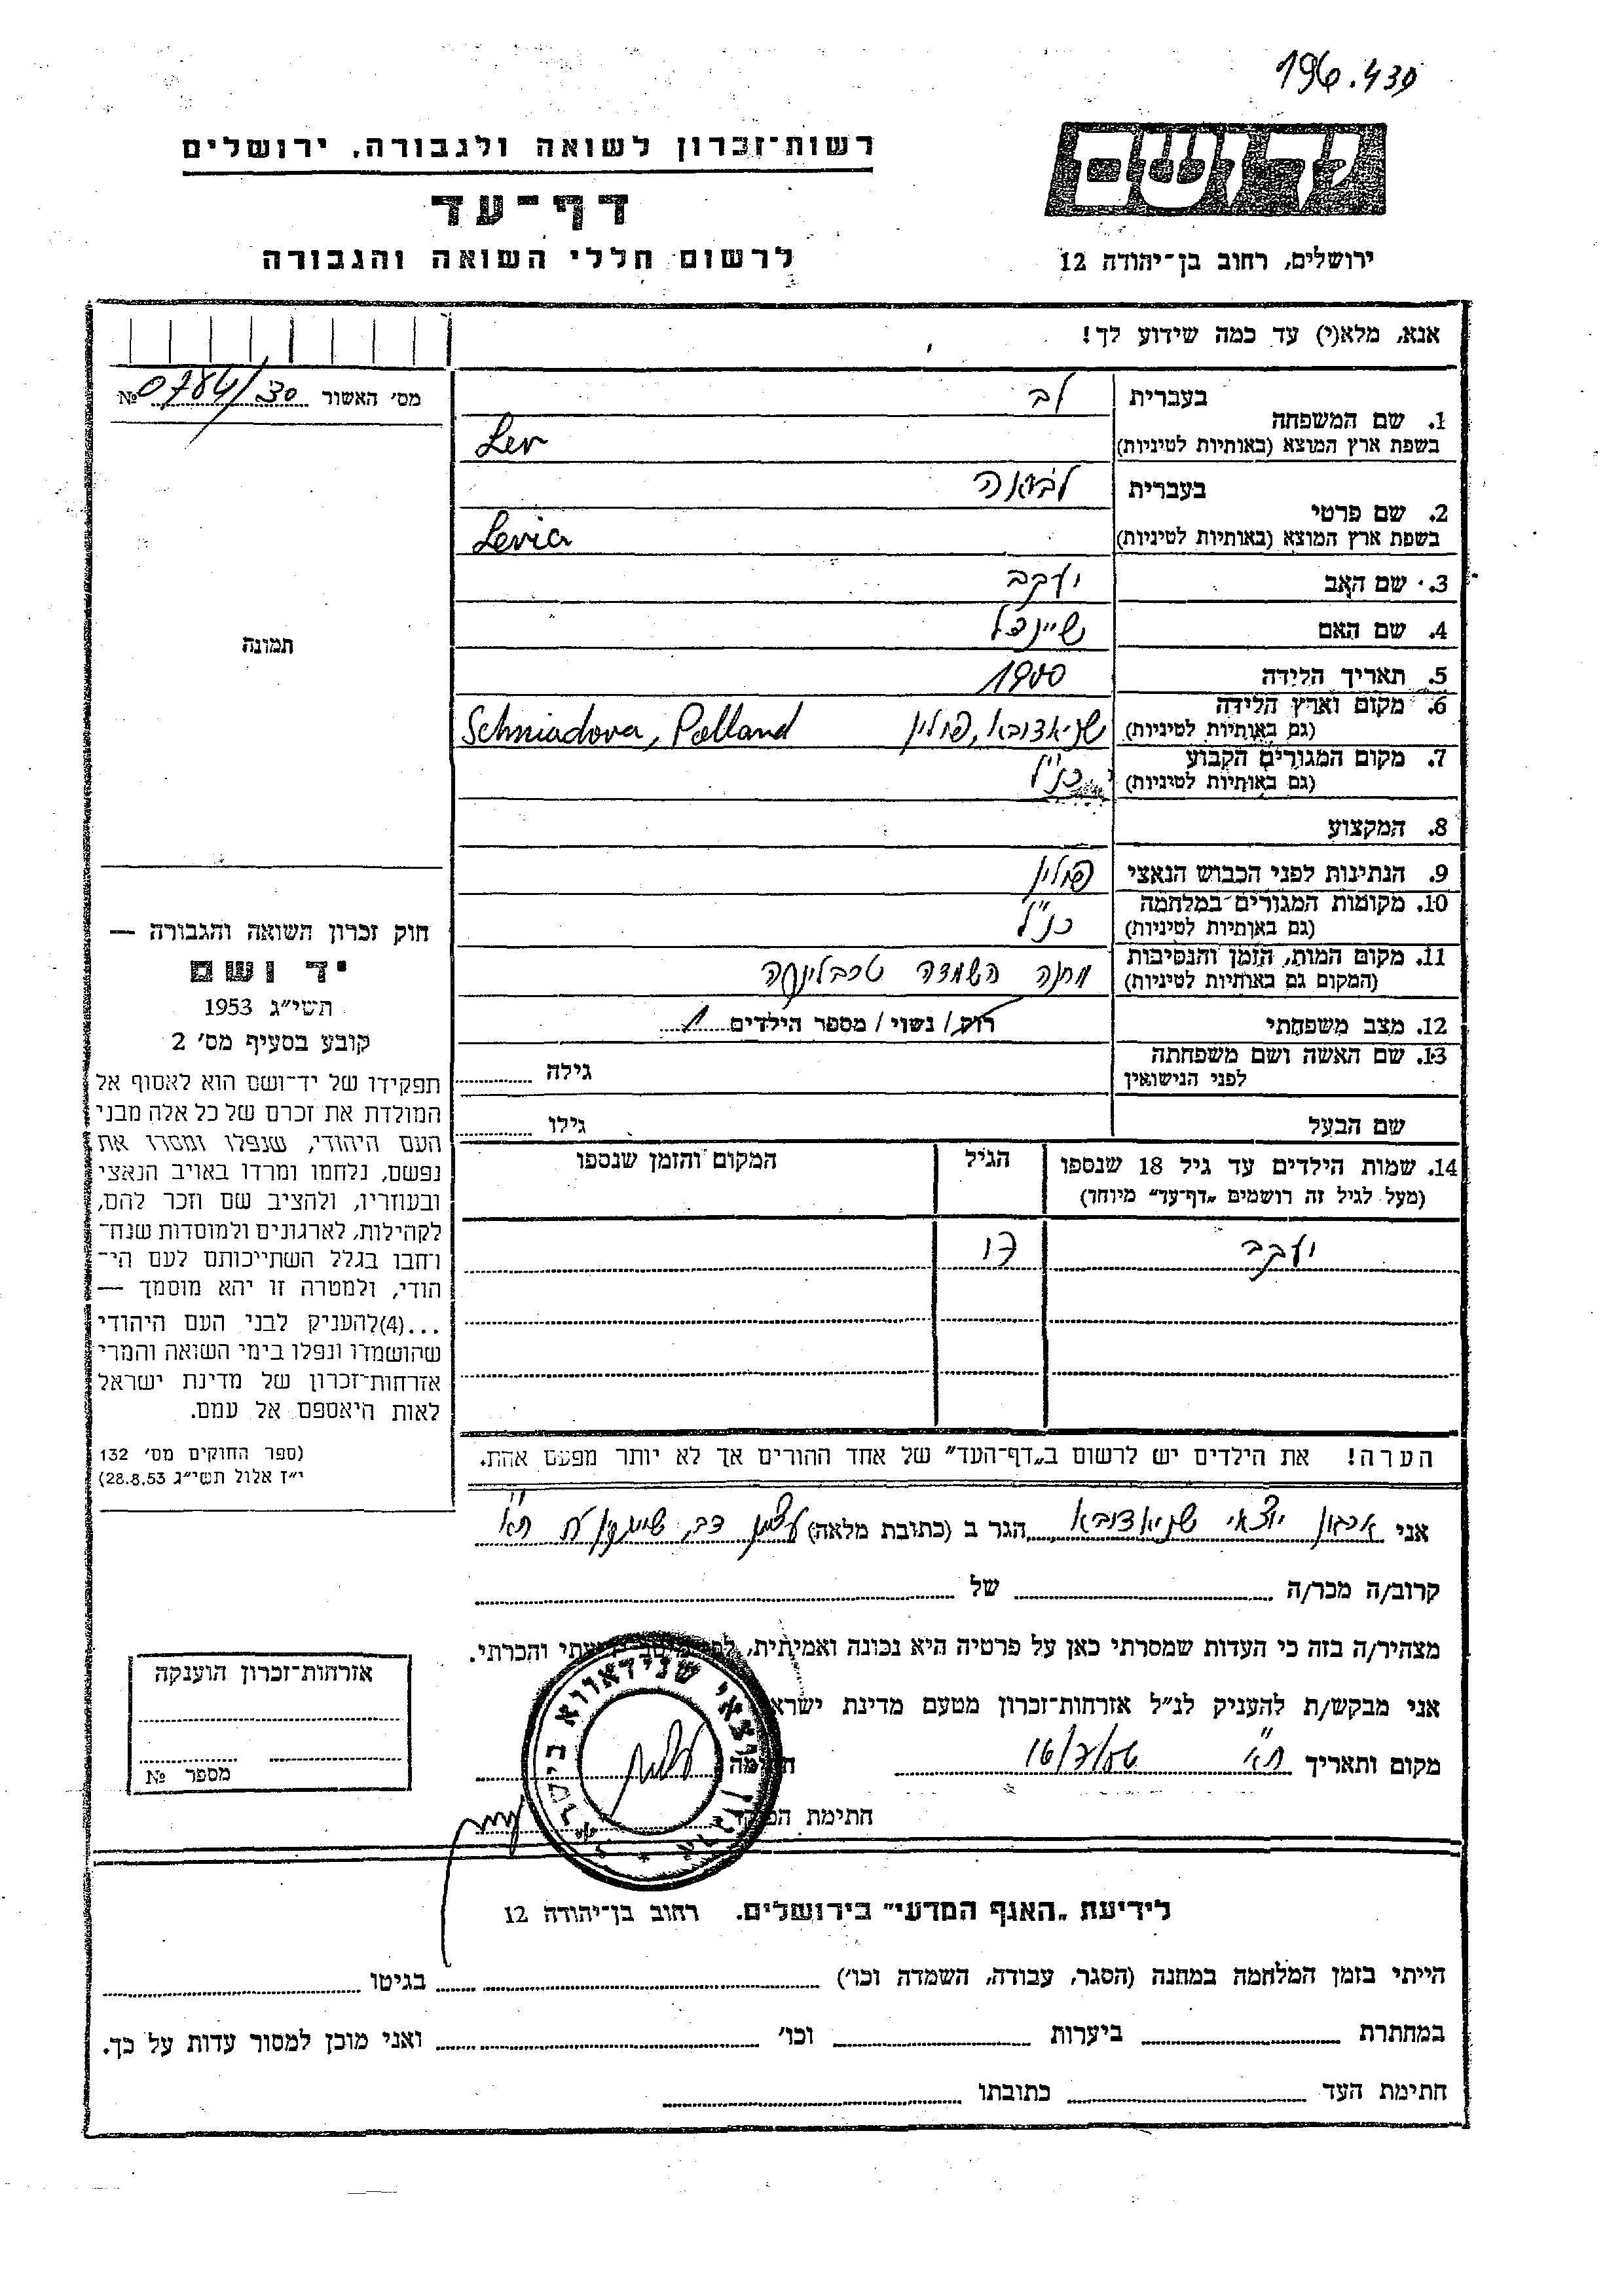 196.430
רשות־זכרון לשואה ולגבורה, ירושלים
דף־עד
לרשום חללי השואה והגבורה
יד ושם
ירושלים, רחוב בן־יהודה 12
אנא, מלא(י) עד כמה שידוע לך!
מס׳ האשור 0784/30 №
תמונה
חוק זכרון השואה והגבורה —
יד ושם
תשי״ג 1953
קובע בסעיף מס׳ 2
תפקידו של יד־ושם הוא לאסוף אל
המולדת את זכרם של כל אלה מבני
העם היהודי, שנפלו ומסרו את
נפשם, נלחמו ומרדו באויב הנאצי
ובעוזריו, ולהציב שם וזכר להם,
לקהילות, לארגונים ולמוסדות שנח־
רחבו בגלל השתייכותם לעם הי־
הודי, ולמטרה זו יהא מוסמך —
...(4)להעניק לבני העם היהודי
שהושמדו ונפלו בימי השואה והמרי
אזרחות־זכרון של מדינת ישראל
לאות היאספם אל עמם.
(ספר החוקים מס׳ 132
י״ז אלול תשי״ג 28.8.53)
1. שם המשפחה בעברית לב
בשפת ארץ המוצא (באותיות לטיניות) Lev
2. שם פרטי בעברית לביאה
בשפת ארץ המוצא (באותיות לטיניות) Levia
3. שם האב יעקב
4. שם האם שיינדל
5. תאריך הלידה 1900
6. מקום וארץ הלידה
(גם באותיות לטיניות) שניאדובא, פולין Schniadova, Polland
7. מקום המגורים הקבוע
(גם באותיות לטיניות) כנ״ל
8. המקצוע
9. הנתינות לפני הכבוש הנאצי פולין
10. מקומות המגורים במלחמה
(גם באותיות לטיניות) כנ״ל
11. מקום המות, הזמן והנסיבות
(המקום גם באותיות לטיניות) מחנה השמדה טרבלינקה
12. מצב משפחתי רוק/ נשוי/ מספר הילדים 1
13. שם האשה ושם משפחתה
לפני הנישואין גילה
שם הבעל גילו
14. שמות הילדים עד גיל 18 שנספו הגיל המקום והזמן שנספו
(מעל לגיל זה רושמים „דף־עד״ מיוחד)
יעקב 17
הערה! את הילדים יש לרשום ב„דף־העד״ של אחד ההורים אך לא יותר מפעם אחת.
אני ארגון יוצאי שניאדובא הגר ב (כתובת מלאה) דב, ת״א
קרוב/ה מכר/ה של
מצהיר/ה בזה כי העדות שמסרתי כאן על פרטיה היא נכונה ואמיתית, והכרתי.
אני מבקש/ת להעניק לנ״ל אזרחות־זכרון מטעם מדינת ישרא
מקום ותאריך ת״א
חתימת
ארגון יוצאי שנידאווא בישראל *
אזרחות־זכרון הוענקה
מספר №
לידיעת „האגף המדעי״ בירושלים. רחוב בן־יהודה 12
הייתי בזמן המלחמה במחנה (הסגר, עבודה, השמדה וכו׳) בגיטו
במחתרת ביערות וכו׳ ואני מוכן למסור עדות על כך.
חתימת העד כתובתו